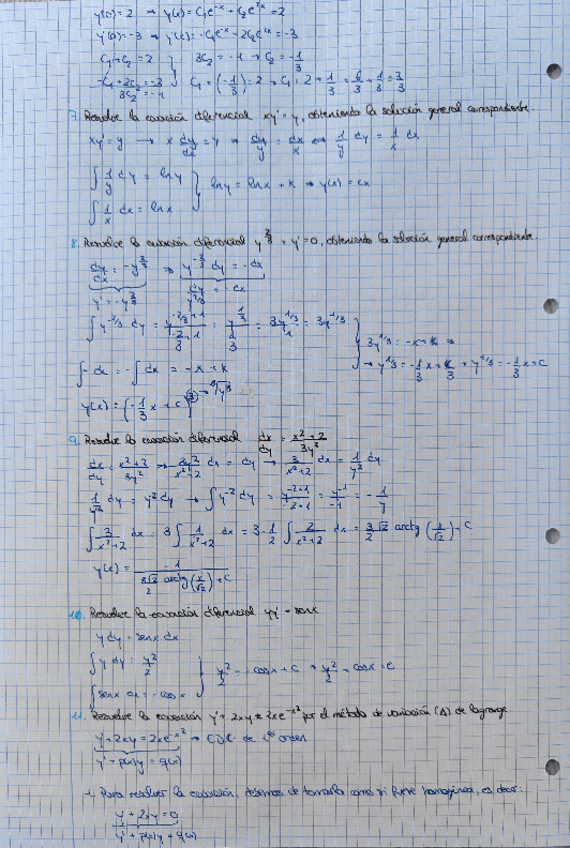 y(0)=2 → y(x)= C₁e⁻ˣ + C₂e²ˣ = 2
y'(0)=-3 → y'(x)= -C₁e⁻ˣ + 2C₂e²ˣ = -3
C₁+C₂ = 2 } 3C₂ = -1 → C₂ = -1/3
-C₁+2C₂ = -3 C₁ + (-1/3) = 2 → C₁ = 2 + 1/3 = 6/3 + 1/3 = 7/3
3C₂ = -1
7. Resolve la ecuación diferencial xy' = y, obteniendo la solución general correspondiente.
xy' = y → x dy/dx = y → dy/y = dx/x → 1/y dy = 1/x dx
∫ 1/y dy = ln y } ln y = ln x + K → y(x) = cx
∫ 1/x dx = ln x
8. Resolve la ecuación diferencial y^2/3 + y' = 0, obteniendo la solución general correspondiente.
dy/dx = -y^2/3 → y^-2/3 dy = -dx
y' = -y^2/3 dy/y^2/3 = -dx
∫ y^-2/3 dy = y^(-2/3+1)/(-2/3+1) = y^1/3/(1/3) = 3y^1/3/1 = 3y^1/3 } 3y^1/3 = -x + K →
∫ -dx = -∫ dx = -x + K → y^1/3 = -1/3 x + K/3 → y^1/3 = -1/3 x + C
y(x) = (-1/3 x + C)^3 → ∛y
9. Resolve la ecuación diferencial dx/dy = x²+2/3y²
dx/dy = x²+2/3y² → 3y²/x²+2 dx = dy → 3/x²+2 dx = 1/y² dy
1/y² dy = y⁻² dy → ∫ y⁻² dy = y^-2+1/-2+1 = y⁻¹/-1 = -1/y
∫ 3/x²+2 dx = 3 ∫ 1/x²+2 dx = 3·1/2 ∫ 2/x²+2 dx = 3√2/2 arctg (x/√2) + C
y(x) = -1/(3√2/2 arctg(x/√2) + C)
10. Resolve la ecuación diferencial yy' = senx
y dy = senx dx
∫ y dy = y²/2 } y²/2 = -cosx + C → y²/2 + cosx = C
∫ senx dx = -cosx
11. Resolve la ecuación y' + 2xy = 2xe^-x² por el método de variación (Δ) de lagrange.
y' + 2xy = 2xe^-x² → de 1er orden
y' + p(x)y = q(x)
Para resolver la ecuación, de tomarla como si fuese homogénea, es decir:
y' + 2xy = 0
y' + p(x)y = q(x)